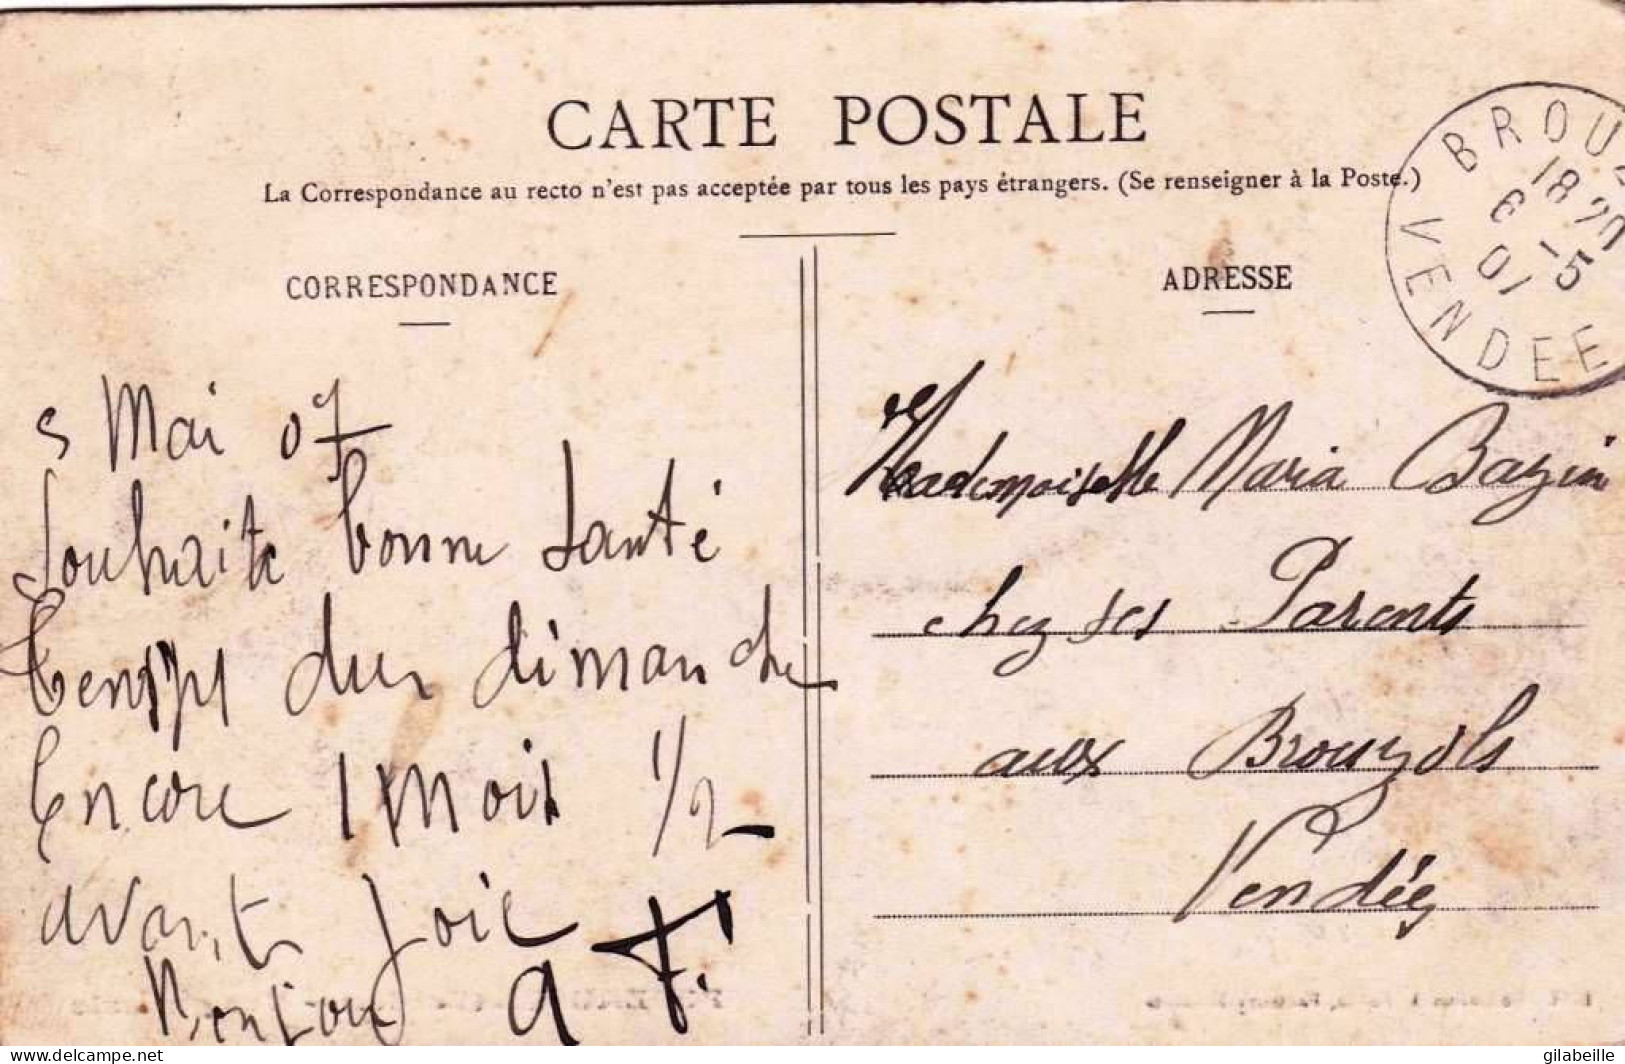 CARTE POSTALE
La Correspondance au recto n'est pas acceptée par tous les pays étrangers. (Se renseigner à la Poste.)
CORRESPONDANCE
ADRESSE
BROUZ
18 20
6 -5
07
VENDEE
5 Mai 07
Souhaite bonne Santé
temps dur dimanche
Encore 1 Mois 1/2
avant joie
A F.
Mademoiselle Maria Bazin
chez ses Parents
aux Brouzils
Vendée
delcampe.net
gilabeille